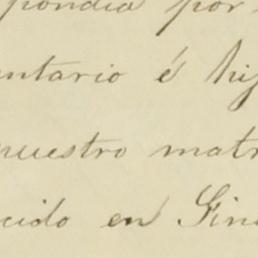 pondia por
entario é hij
nuestro matr
cido en Gin